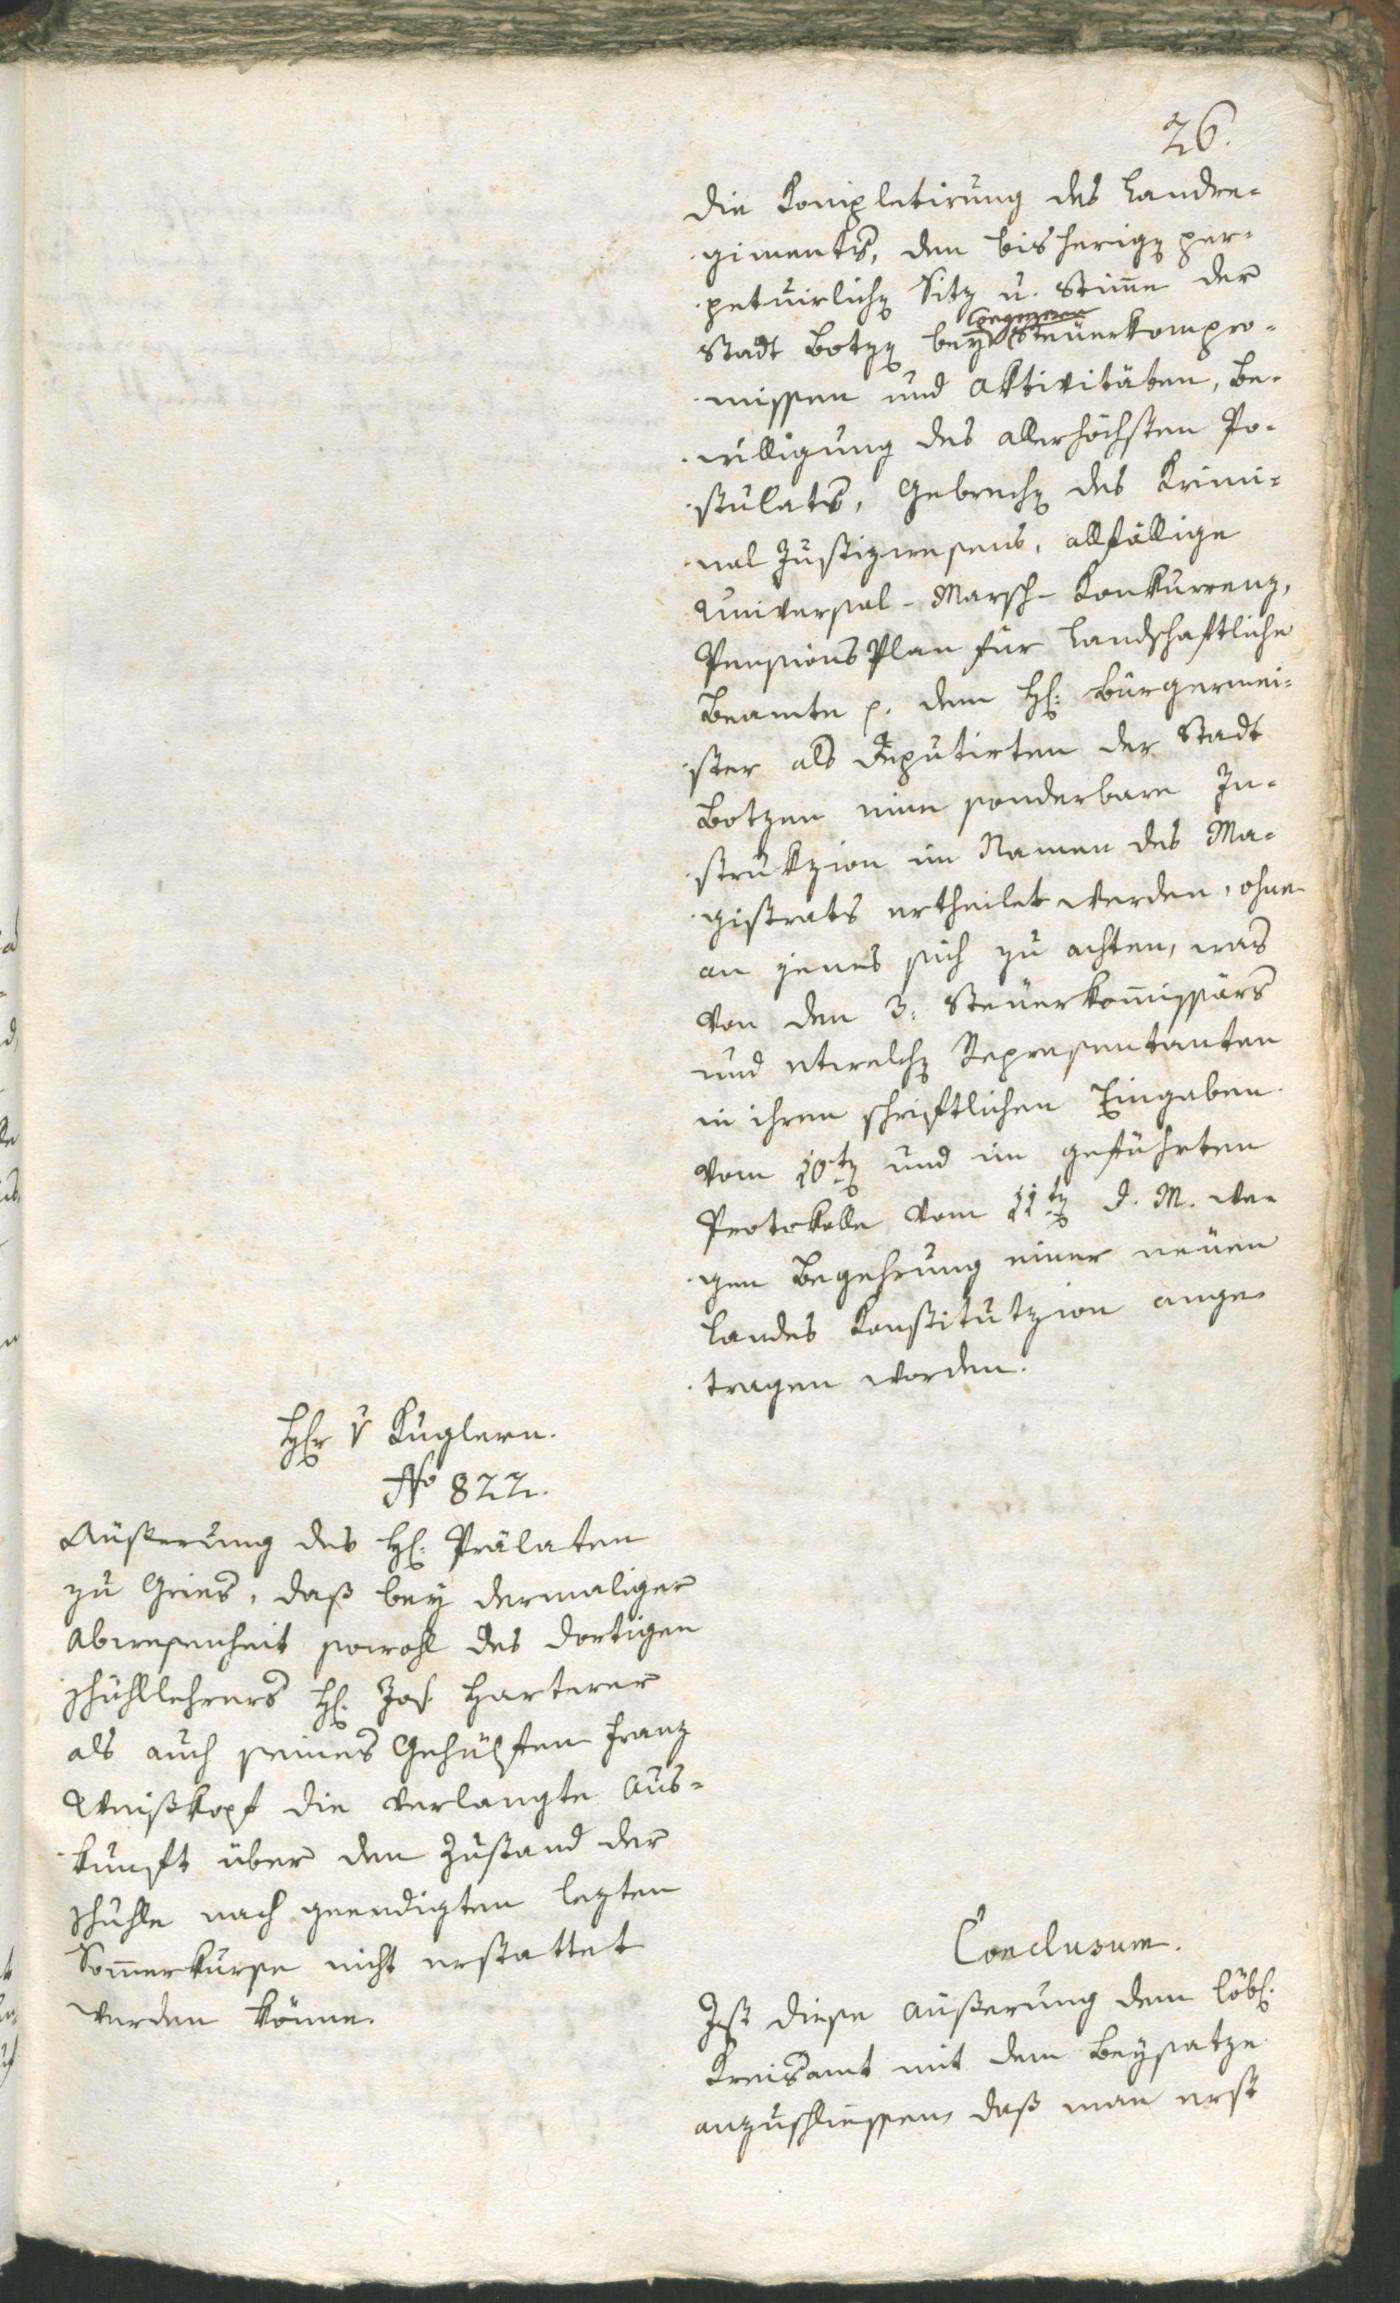 26.
die Kompletirung des Landre-
giments, den bisherigen per-
petuirlichen Sitz u. Stimme der
Stadt Botzen bey Steuerkompro-
missen und Aktivitäten, Be-
willigung des allerhöchsten Po-
stulats, Gebrechen des Krimi-
nal Justizwesens, allfällige
Universal-Marsch-Konkurrenz,
Pensions Plan für Landschaftliche
Beamte p. dem H: Bürgermei-
ster als Deputirten der Stadt
Botzen eine sonderbare In-
strukzion im Namen des Ma-
gistrats ertheilet werden, ohne
an jenes sich zu achten, was
von den 3. Steuerkommissärs
und etwelchen Representanten
in ihren schriftlichen Eingaben
vom 10ten und im geführten
Protokolle vom 11ten d. M. we-
gen Begehrung einer neuen
Landes Konstitutzion ange-
tragen worden.
Her v Kuglern.
No 822.
Äußerung des H: Prälaten
zu Gries, daß bey dermaliger
Abwesenheit sowohl des dortigen
Schullehrers H: Jos. Harterer
als auch seines Gehülften Franz
Weißkopf die verlangte Aus-
kunft über den Zustand der
Schule nach geendigten lezten
Sommerkurse nicht erstattet
werden könne.
Conclusum.
Ist diese Äußerung dem löbl.
Kreisamt mit dem Beysatze
anzuschliessen, daß man erst